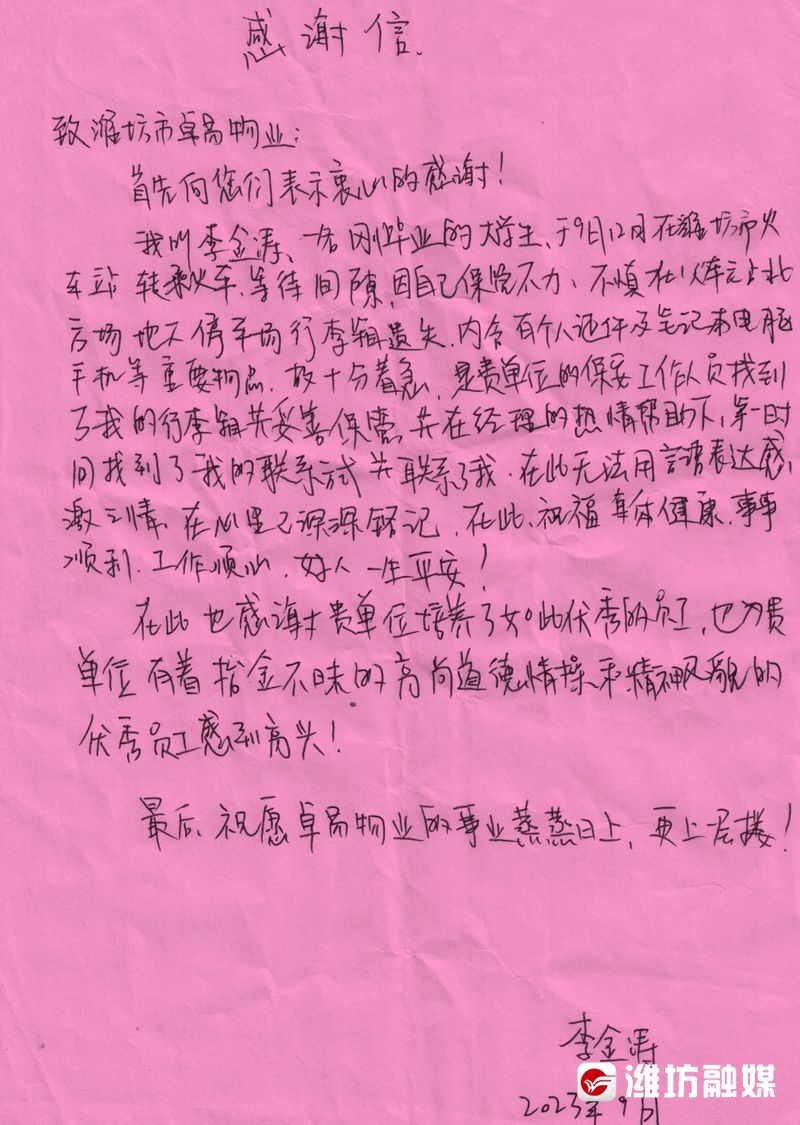 感谢信
致潍坊市卓易物业:
首先向您们表示衷心的感谢!
我叫李金涛、一名刚毕业的大学生、于9月12日在潍坊市火
车站转乘火车、等待间隙,因自己保管不力、不慎在火车站北
广场地下停车场行李箱遗失,内含有个人证件及笔记本电脑
手机等重要物品,故十分着急,是贵单位的保安工作人员找到
了我的行李箱并妥善保管,并在经理的热情帮助下,第一时
间找到了我的联系方式并联系了我.在此无法用言语表达感
激之情,在心里已深深铭记,在此、祝福身体健康,事事
顺利.工作顺心,好人一生平安!
在此也感谢贵单位培养了如此优秀的员工,也为贵
单位有着拾金不昧的高尚道德情操和精神风貌的
优秀员工感到高兴!
最后、祝愿卓易物业的事业蒸蒸日上,更上层楼!
李金涛
潍坊融媒
2023年9月